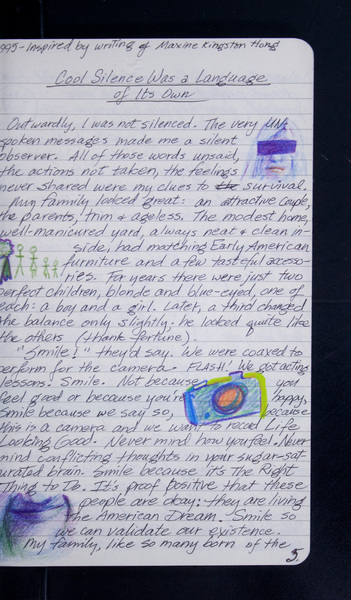 995-Inspired by writing of Maxine Kingston Hong
Cool Silence Was a Language
of Its Own
Outwardly, I was not silenced. The very UN-
spoken messages made me a silent
observer. All of those words unsaid,
the actions not taken, the feelings
never shared were my clues to the survival.
My family looked great: an attractive couple,
the parents, trim & ageless. The modest home,
well-manicured yard, always neat & clean in-
side, had matching Early American
furniture and a few tasteful accesso-
ries. For years there were just two
perfect children, blonde and blue-eyed, one of
each: a boy and a girl. Later, a third changed
the balance only slightly: he looked quite like
the others (thank fortune).
"Smile!" they'd say. We were coaxed to
perform for the camera. FLASH! We got acting
lessons. Smile. Not because you
feel good or because you're happy,
Smile because we say so, because
this is a camera and we want to record Life
Looking Good. Never mind how you feel. Never
mind conflicting thoughts in your sugar-sat-
urated brain. Smile because it's the Right
Thing to Do. It's proof positive that these
people are okay: they are living
the American Dream. Smile so
we can validate our existence.
My family, like so many born of the
5.